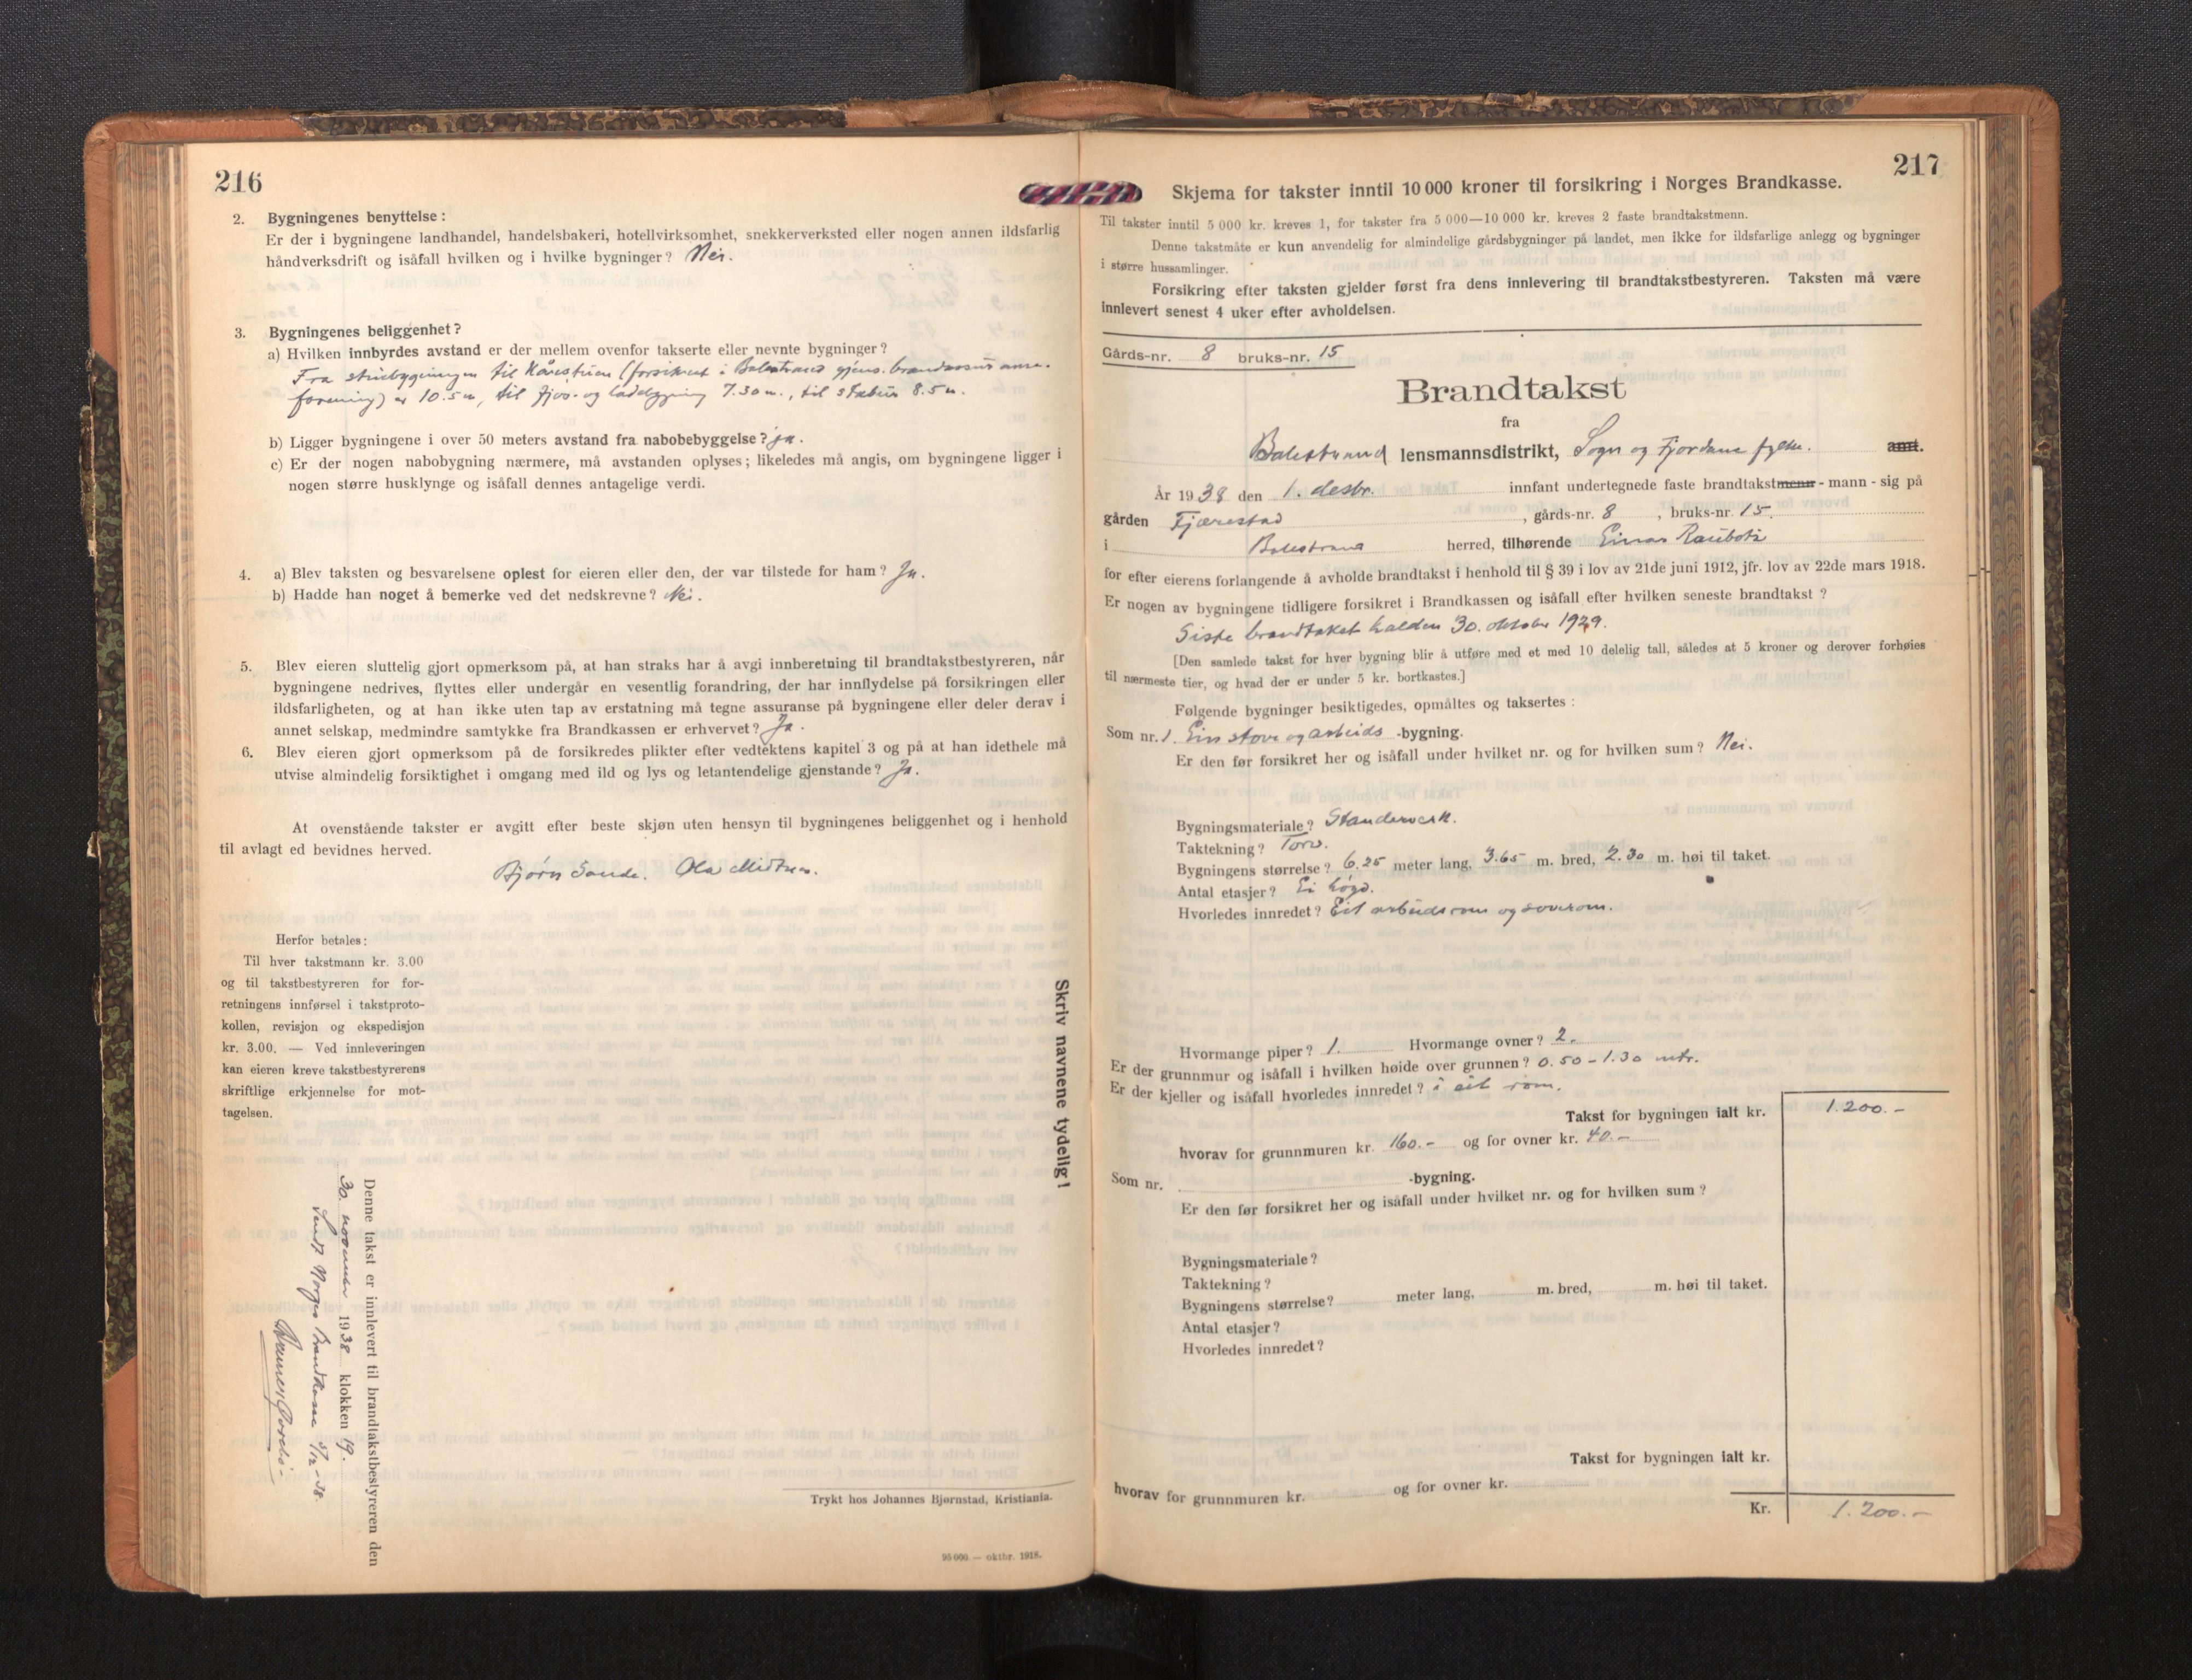 216
2. Bygningenes benyttelse:
Er der i bygningene landhandel, handelsbakeri, hotellvirksomhet, snekkerverksted eller nogen annen ildsfarlig
håndverksdrift og isåfall hvilken og i hvilke bygninger? Nei.
3. Bygningenes beliggenhet?
a) Hvilken innbyrdes avstand er der mellem ovenfor takserte eller nevnte bygninger?
Fra stuebygningen til Kårstuen (forsikret i Balestrand gjens. brandassuranse-
forening) er 10.5 m, til fjøs- og ladebygning 7.30 m., til stabur 8.5 m.
b) Ligger bygningene i over 50 meters avstand fra nabobebyggelse? ja.
c) Er der nogen nabobygning nærmere, må avstanden oplyses; likeledes må angis, om bygningene ligger i
nogen større husklynge og isåfall dennes antagelige verdi.
4. a) Blev taksten og besvarelsene oplest for eieren eller den, der var tilstede for ham? Ja.
b) Hadde han noget å bemerke ved det nedskrevne? Nei.
5. Blev eieren sluttelig gjort opmerksom på, at han straks har å avgi innberetning til brandtakstbestyreren, når
bygningene nedrives, flyttes eller undergår en vesentlig forandring, der har innflydelse på forsikringen eller
ildsfarligheten, og at han ikke uten tap av erstatning må tegne assuranse på bygningene eller deler derav i
annet selskap, medmindre samtykke fra Brandkassen er erhvervet? Ja.
6. Blev eieren gjort opmerksom på de forsikredes plikter efter vedtektens kapitel 3 og på at han idethele må
utvise almindelig forsiktighet i omgang med ild og lys og letantendelige gjenstande? Ja.
At ovenstående takster er avgitt efter beste skjøn uten hensyn til bygningenes beliggenhet og i henhold
til avlagt ed bevidnes herved.
Bjørn Sande. Ola Midtun.
Herfor betales:
Til hver takstmann kr. 3.00
og til takstbestyreren for for-
retningens innførsel i takstproto-
kollen, revisjon og ekspedisjon
kr. 3.00. — Ved innleveringen
kan eieren kreve takstbestyrerens
skriftlige erkjennelse for mot-
tagelsen.
Skriv navnene tydelig!
Denne takst er innlevert til brandtakstbestyreren den
30. november 1938 klokken 19.
Sendt Norges Brandkasse 5/12-38.
Trykt hos Johannes Bjørnstad, Kristiania.
95 000 — oktbr. 1918.
217
Skjema for takster inntil 10 000 kroner til forsikring i Norges Brandkasse.
Til takster inntil 5 000 kr. kreves 1, for takster fra 5 000—10 000 kr. kreves 2 faste brandtakstmenn.
Denne takstmåte er kun anvendelig for almindelige gårdsbygninger på landet, men ikke for ildsfarlige anlegg og bygninger
i større hussamlinger.
Forsikring efter taksten gjelder først fra dens innlevering til brandtakstbestyreren. Taksten må være
innlevert senest 4 uker efter avholdelsen.
Gårds-nr. 8 bruks-nr. 15
Brandtakst
fra
Balestrand lensmannsdistrikt, Sogn og Fjordane fylke. amt.
År 1938 den 1. desbr. innfant undertegnede faste brandtakstmenn - mann - sig på
gården Fjærestad, gårds-nr. 8, bruks-nr. 15.
i Balestrand herred, tilhørende Einar Raubotn
for efter eierens forlangende å avholde brandtakst i henhold til § 39 i lov av 21de juni 1912, jfr. lov av 22de mars 1918.
Er nogen av bygningene tidligere forsikret i Brandkassen og isåfall efter hvilken seneste brandtakst?
Siste brandtakst halden 30. oktober 1929.
[Den samlede takst for hver bygning blir å utføre med et med 10 delelig tall, således at 5 kroner og derover forhøies
til nærmeste tier, og hvad der er under 5 kr. bortkastes.]
Følgende bygninger besiktigedes, opmåltes og taksertes:
Som nr. 1 Ein stove og arbeids -bygning.
Er den før forsikret her og isåfall under hvilket nr. og for hvilken sum? Nei.
Bygningsmateriale? Standerverk.
Taktekning? Torv.
Bygningens størrelse? 6.25 meter lang, 3.65 m. bred, 2.30 m. høi til taket.
Antal etasjer? Ei høgd.
Hvorledes innredet? Eit arbeidsrom og soverom.
Hvormange piper? 1. Hvormange ovner? 2.
Er der grunnmur og isåfall i hvilken høide over grunnen? 0.50 - 1.30 mtr.
Er der kjeller og isåfall hvorledes innredet? i eit rom.
Takst for bygningen ialt kr. 1.200.-
hvorav for grunnmuren kr. 160.- og for ovner kr. 40.-
Som nr. -bygning.
Er den før forsikret her og isåfall under hvilket nr. og for hvilken sum?
Bygningsmateriale?
Taktekning?
Bygningens størrelse? meter lang, m. bred, m. høi til taket.
Antal etasjer?
Hvorledes innredet?
Takst for bygningen ialt kr.
hvorav for grunnmuren kr. og for ovner kr.
Kr. 1.200.-